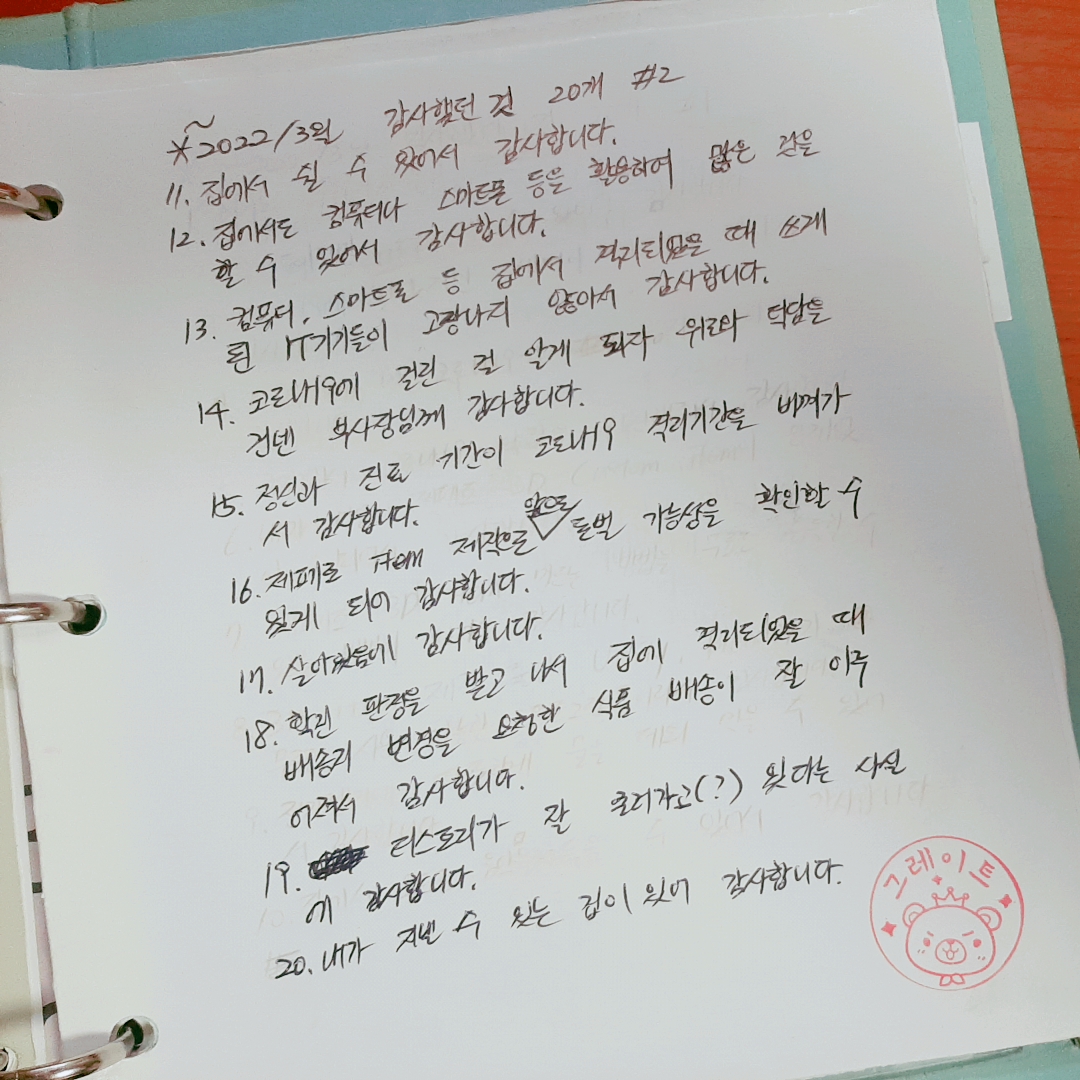 ※~2022/3월 감사했던 것 20개 #2
11. 집에서 쉴 수 있어서 감사합니다.
12. 집에서도 컴퓨터나 스마트폰 등을 활용하여 많은 일을
할 수 있어서 감사합니다.
13. 컴퓨터, 스마트폰 등 집에서 격리되었을 때 쓰게
된 IT기기들이 고장나지 않아서 감사합니다.
14. 코로나19에 걸린 걸 알게 되자 위로와 덕담을
건넨 부사장님께 감사합니다.
15. 정신과 진료 기간이 코로나19 격리기간을 비껴가
서 감사합니다.
16. 제페토 제작으로 앞으로 돈벌 가능성을 확인할 수
있게 되어 감사합니다.
17. 살아있음에 감사합니다.
18. 확진 판정을 받고 나서 집에 격리되었을 때
배송지 변경을 요청한 식품 배송이 잘 이루
어져서 감사합니다.
19. 티스토리가 잘 굴러가고(?) 있다는 사실
에 감사합니다.
20. 내가 지낼 수 있는 집이 있어 감사합니다.
그레이트